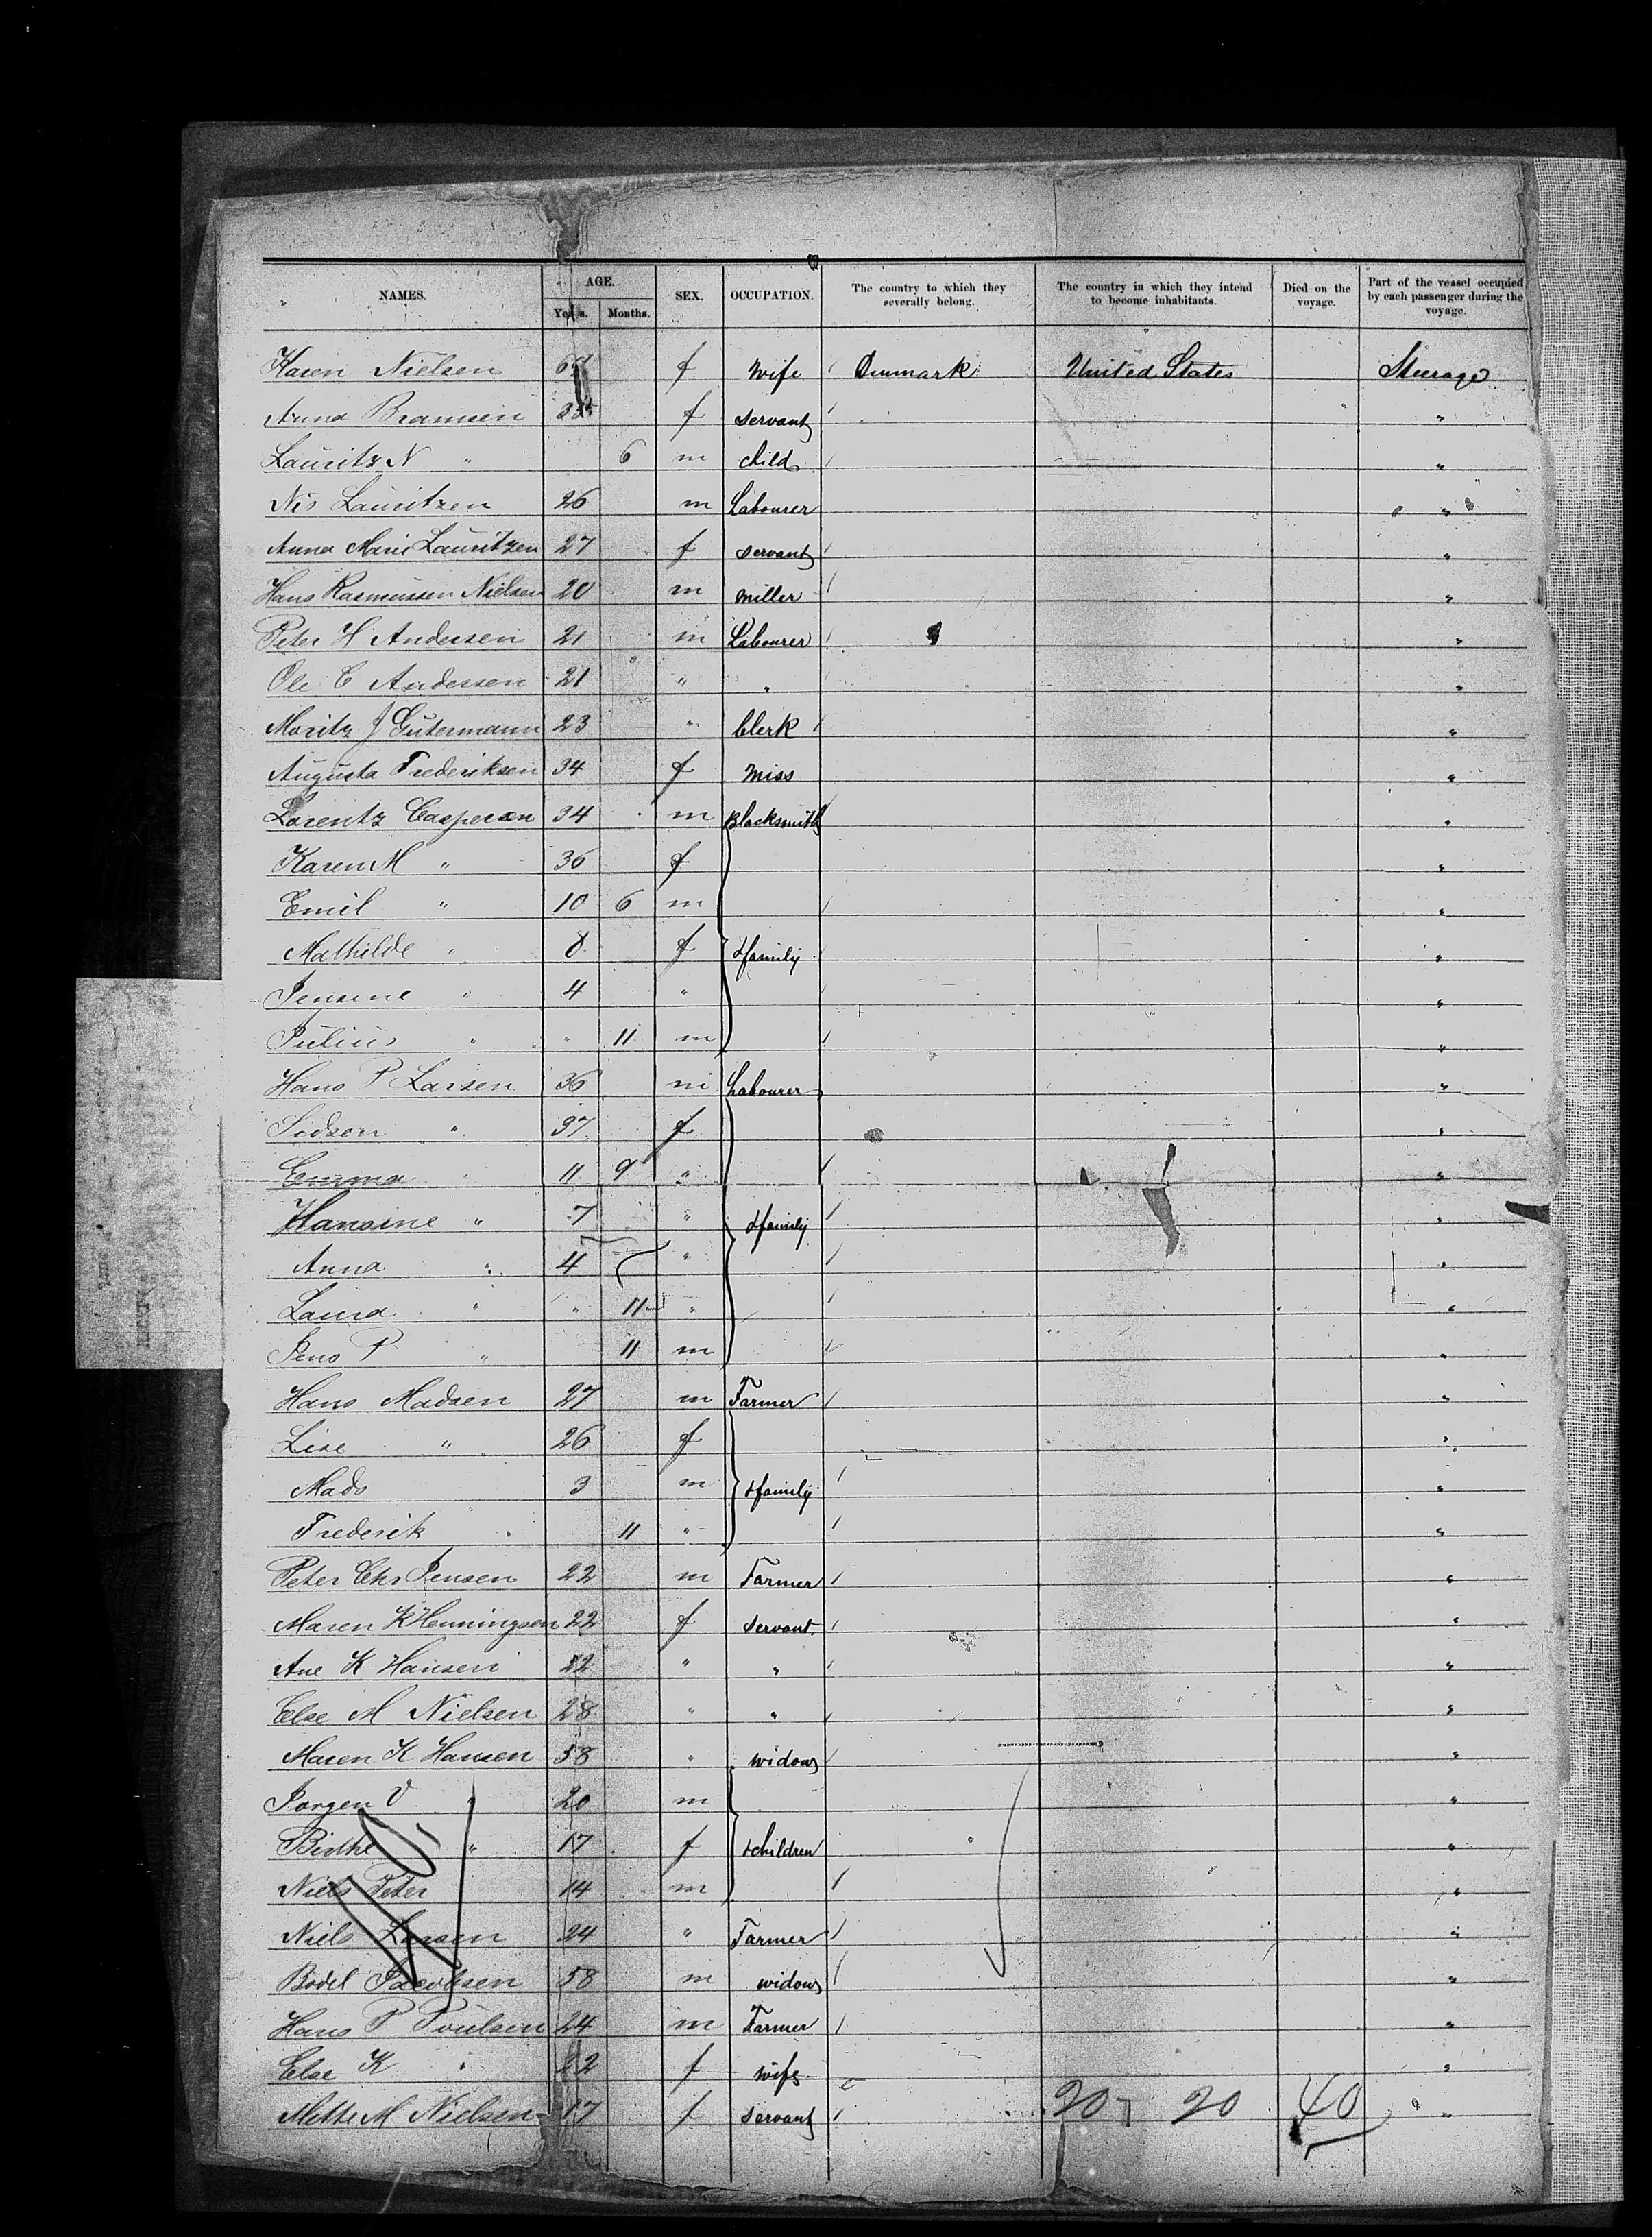 NAMES. AGE. SEX. OCCUPATION. The country to which they severally belong. The country in which they intend to become inhabitants. Died on the voyage. Part of the vessel occupied by each passenger during the voyage.
Years. Months.
Karen Nielsen f Wife Denmark United States Steerage
Anna Bramsen f servant "
Lauritz N " 6 m child "
Nis Lauritzen 26 m Labourer "
Anna Marie Lauritzen 27 f servant "
Hans Rasmussen Nielsen 20 m Miller "
Peter H Andersen 21 m Labourer "
Ole C Andersen 21 " " "
Moritz J Gütermann 23 " Clerk "
Augusta Frederiksen 34 f Miss "
Lorentz Caspersen 34 m Blacksmith "
Karen M " 36 f "
Emil " 10 6 m "
Mathilde " 8 f + family "
Jensine " 4 " "
Julius " " 11 m "
Hans P Larsen 36 m Labourer "
Sidsen " 37 f "
Emma " 11 9 " "
Hansine " 7 " + family "
Anna " 4 " "
Laura " " 11 " "
Jens P " 11 m "
Hans Madsen 27 m Farmer "
Lise " 26 f "
Mads 3 m + family "
Frederik " 11 " "
Peter Chr Jensen 22 m Farmer "
Maren K Henningsen 22 f servant "
Ane K Hansen 22 " " "
Else M Nielsen 28 " " "
Maren K Hansen 58 " widow "
Jorgen V " 20 m "
Birthe " 17 f + children "
Niels Peter 14 m "
Niels Larsen 24 " Farmer "
Bodil Jacobsen 58 m widow "
Hans P Poulsen 24 m Farmer "
Else K " 22 f wife "
Mette M Nielsen 17 f servant "
20 20 40